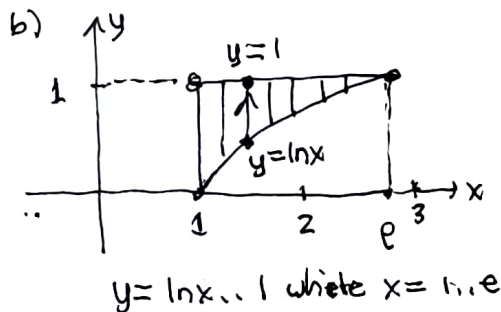 b)
y
y=1
1
y=lnx
x
1
2
e
3
..
y= lnx..1 where x= 1..e